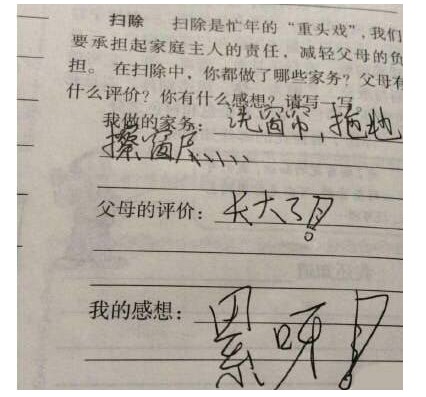 扫除 扫除是忙年的“重头戏”，我们
要承担起家庭主人的责任，减轻父母的负
担。在扫除中，你都做了哪些家务？父母有
什么评价？你有什么感想？请写一写。
我做的家务：洗窗帘，拖地
擦窗户、、、、、
父母的评价：长大了！
我的感想：累呀！